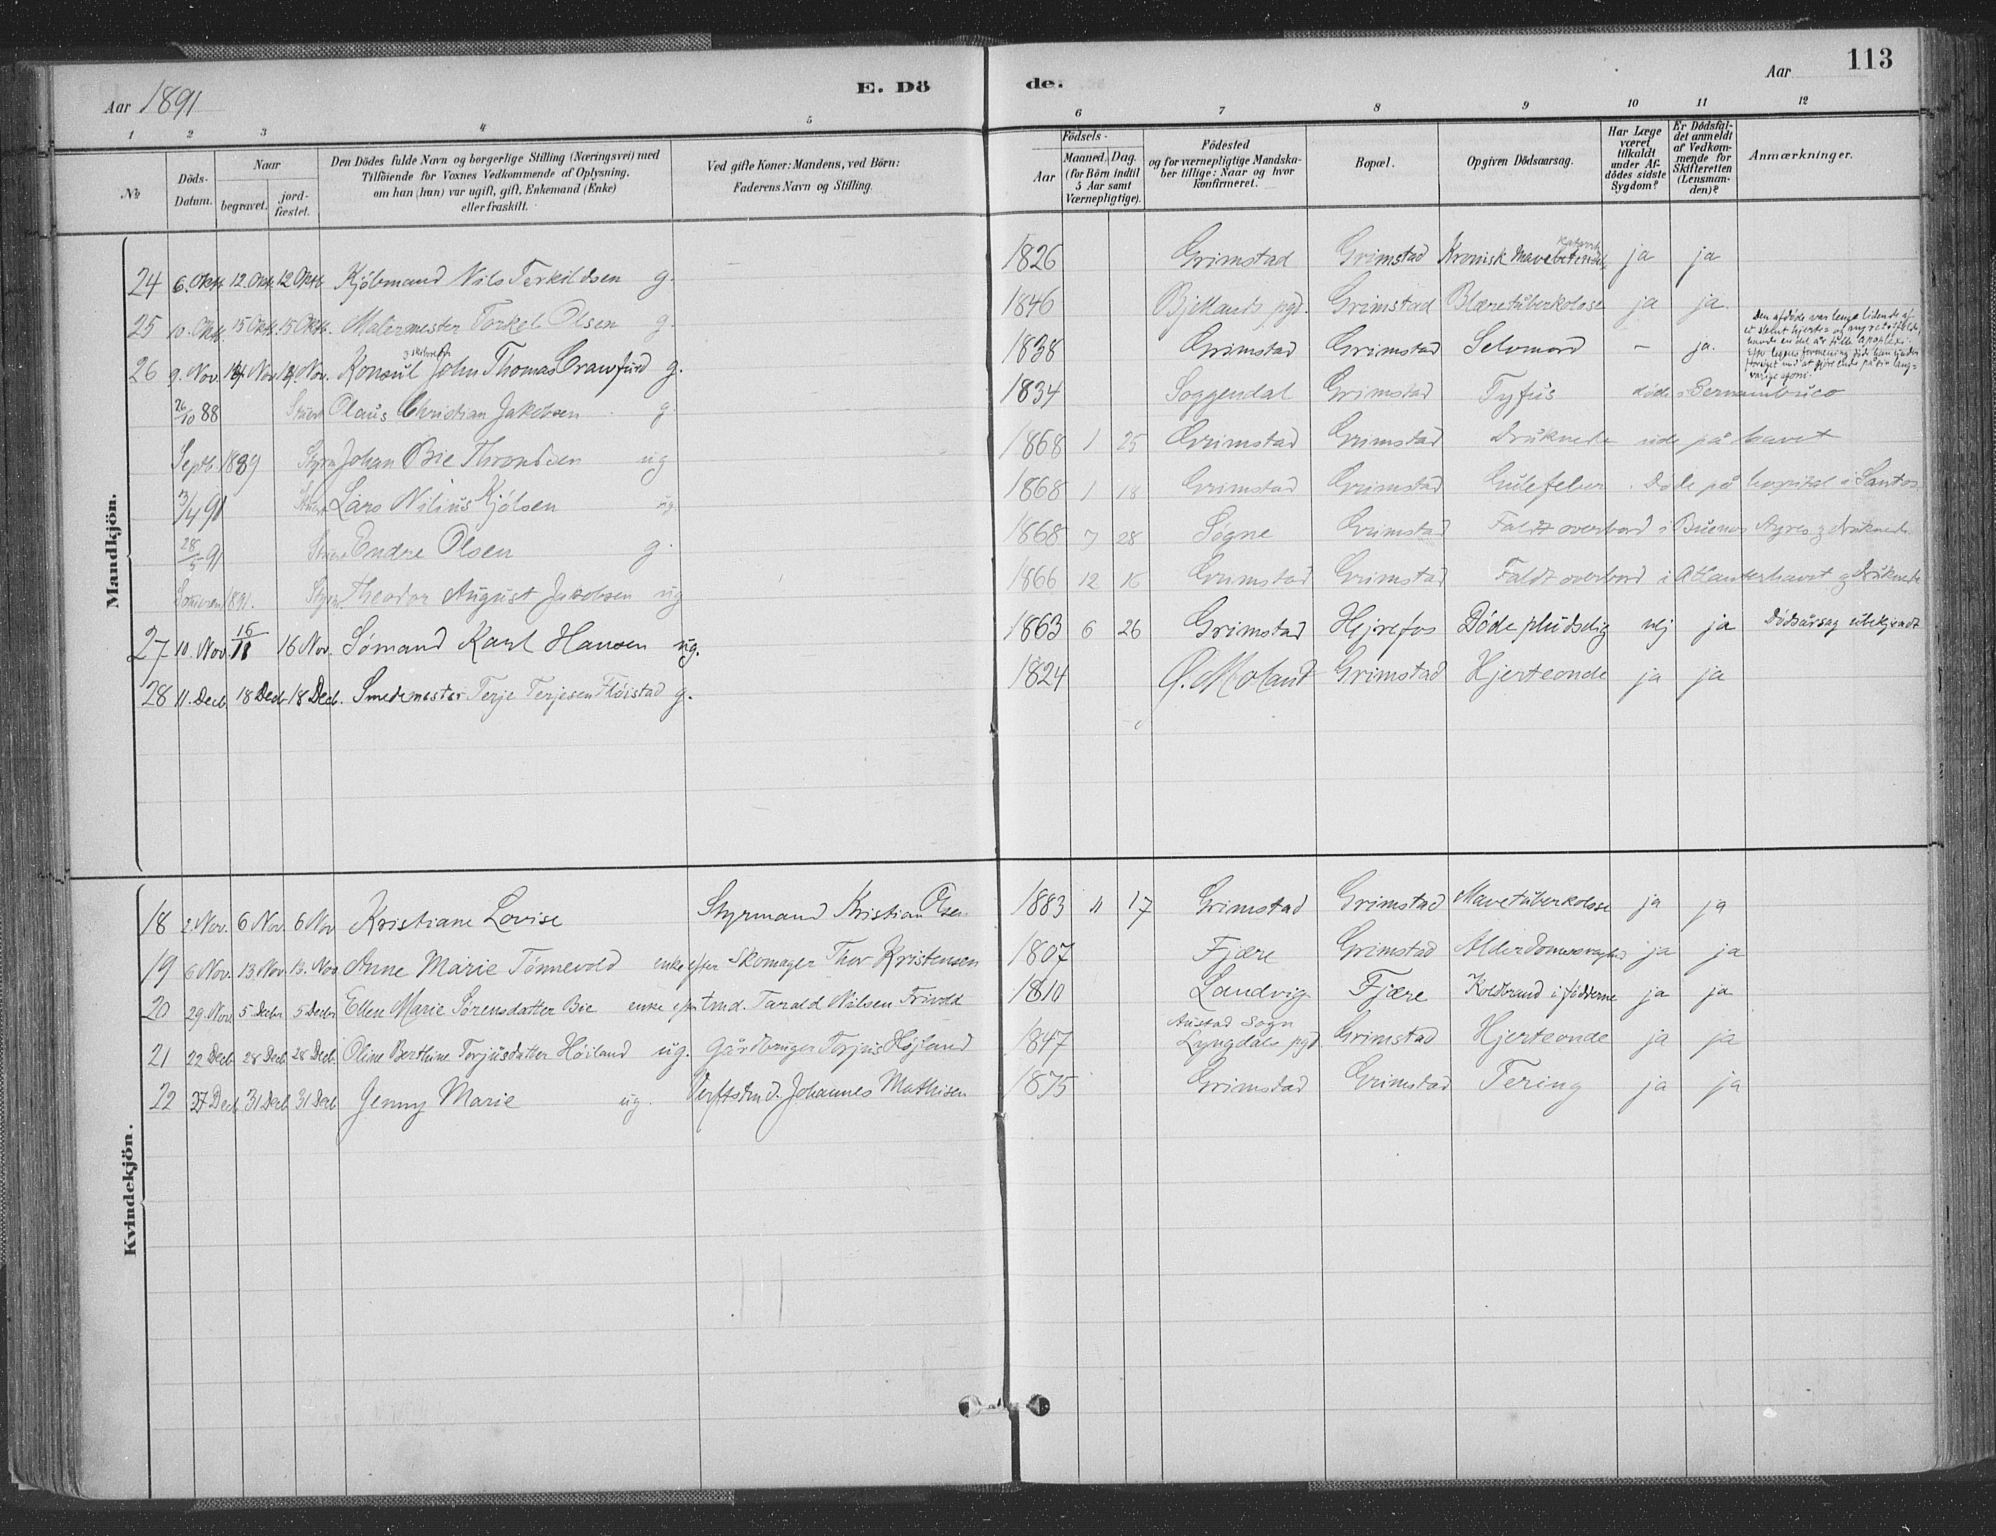 Aar 1891
E. Dö
de.
Aar
113
1 2 3 4 5 6 7 8 9 10 11 12
№
Döds-Datum.
Naar
begravet.
jord-fæstet.
Den Dödes fulde Navn og borgerlige Stilling (Næringsvei) med
Tilföiende for Voxnes Vedkommende af Oplysning,
om han (hun) var ugift, gift, Enkemand (Enke)
eller fraskilt.
Ved gifte Koner: Mandens, ved Börn:
Faderens Navn og Stilling.
Födsels-
Aar
Maaned. Dag.
(for Börn indtil
5 Aar samt
Værnepligtige).
Födested
og for værnepligtige Mandska-
ber tillige: Naar og hvor
konfirmeret.
Bopæl.
Opgiven Dödsaarsag.
Har Læge
været
tilkaldt
under Af-
dödes sidste
Sygdom?
Er Dödsfal-
det anmeldt
af Vedkom-
mende for
Skifteretten
(Lensman-
den)?
Anmærkninger.
Mandkjön.
24 6. Oktb. 12. Oktb. 12 Oktb. Kjøbmand Nils Terkildsen g. 1826 Grimstad Grimstad Kronisk Mave ja ja
25 10. Oktb. 15 Oktb. 15 Oktb. Malermester Torkel Olsen g. 1846 Bjellands pgd. Grimstad Blæretüberkolose ja ja
26 9. Nov. 14 Nov 14. Nov. Konsul John Thomas Crawfurd g. 1838 Grimstad Grimstad Selvmord - ja. Den afdøde var længe lidende af
26/10 88 Olaus Christian Jakobsen g. 1834 Soggendal Grimstad Tyfüs døde i Pernambuco
Septb. 1889 Styrm Johan Bie Throndsen ug 1868 1 25 Grimstad Grimstad Druknede ude på havet
13/4 91 Lars Nilius Kjølsen ug 1868 1 18 Grimstad Grimstad Gulefeber Døde på hospital i Santos
28/5 91 Endre Olsen g. 1868 7 28 Søgne Grimstad Faldt overbord i Buenos Ayres & druknede
Sommeren 1891. Styrm. Theodor August Jakobsen ug 1866 12 16 Grimstad Grimstad Faldt overbord i Atlanterhavet og Druknede
27 10. Nov. 16/11 16 Nov. Sømand Karl Hansen ug. 1863 6 26 Grimstad Hejrefos Døde pludselig nej ja Dødsårsag ubekjendt
28 11. Decb. 18 Decb. 18 Decb. Smedemester Terje Terjesen Fløistad g. 1824 Ø. Moland Grimstad Hjerteonde ja ja
Kvindekjön.
18 2. Nov. 6 Nov. 6 Nov Kristiane Lovise Styrmand Kristian Olsen 1883 11 17 Grimstad Grimstad Mavetüberkolose ja ja
19 6 Nov. 13 Nov. 13. Nov Anne Marie Tønnevold enke efter Skomager Thor Kristensen 1807 Fjære Grimstad Alderdomssvaghed ja ja
20 29. Nov. 5 Decbr 5 Decbr Ellen Marie Sørensdatter Bie enke efter tmd. Tarald Nilsen Frivold 1810 Landvig Fjære Koldbrand i fødderne ja ja
21 22 Decb 28 Decb. 28 Decb. Oline Berthine Torjusdatter Høiland ug. gårdbruger Torjus Højland 1847 Austad Sogn Lyngdals pgd Grimstad Hjerteonde ja ja
22 27 Decb 31 Decb 31 Decb Jenny Marie ug. Verftstmd. Johannes Mathisen 1875 Grimstad Grimstad Tering ja ja